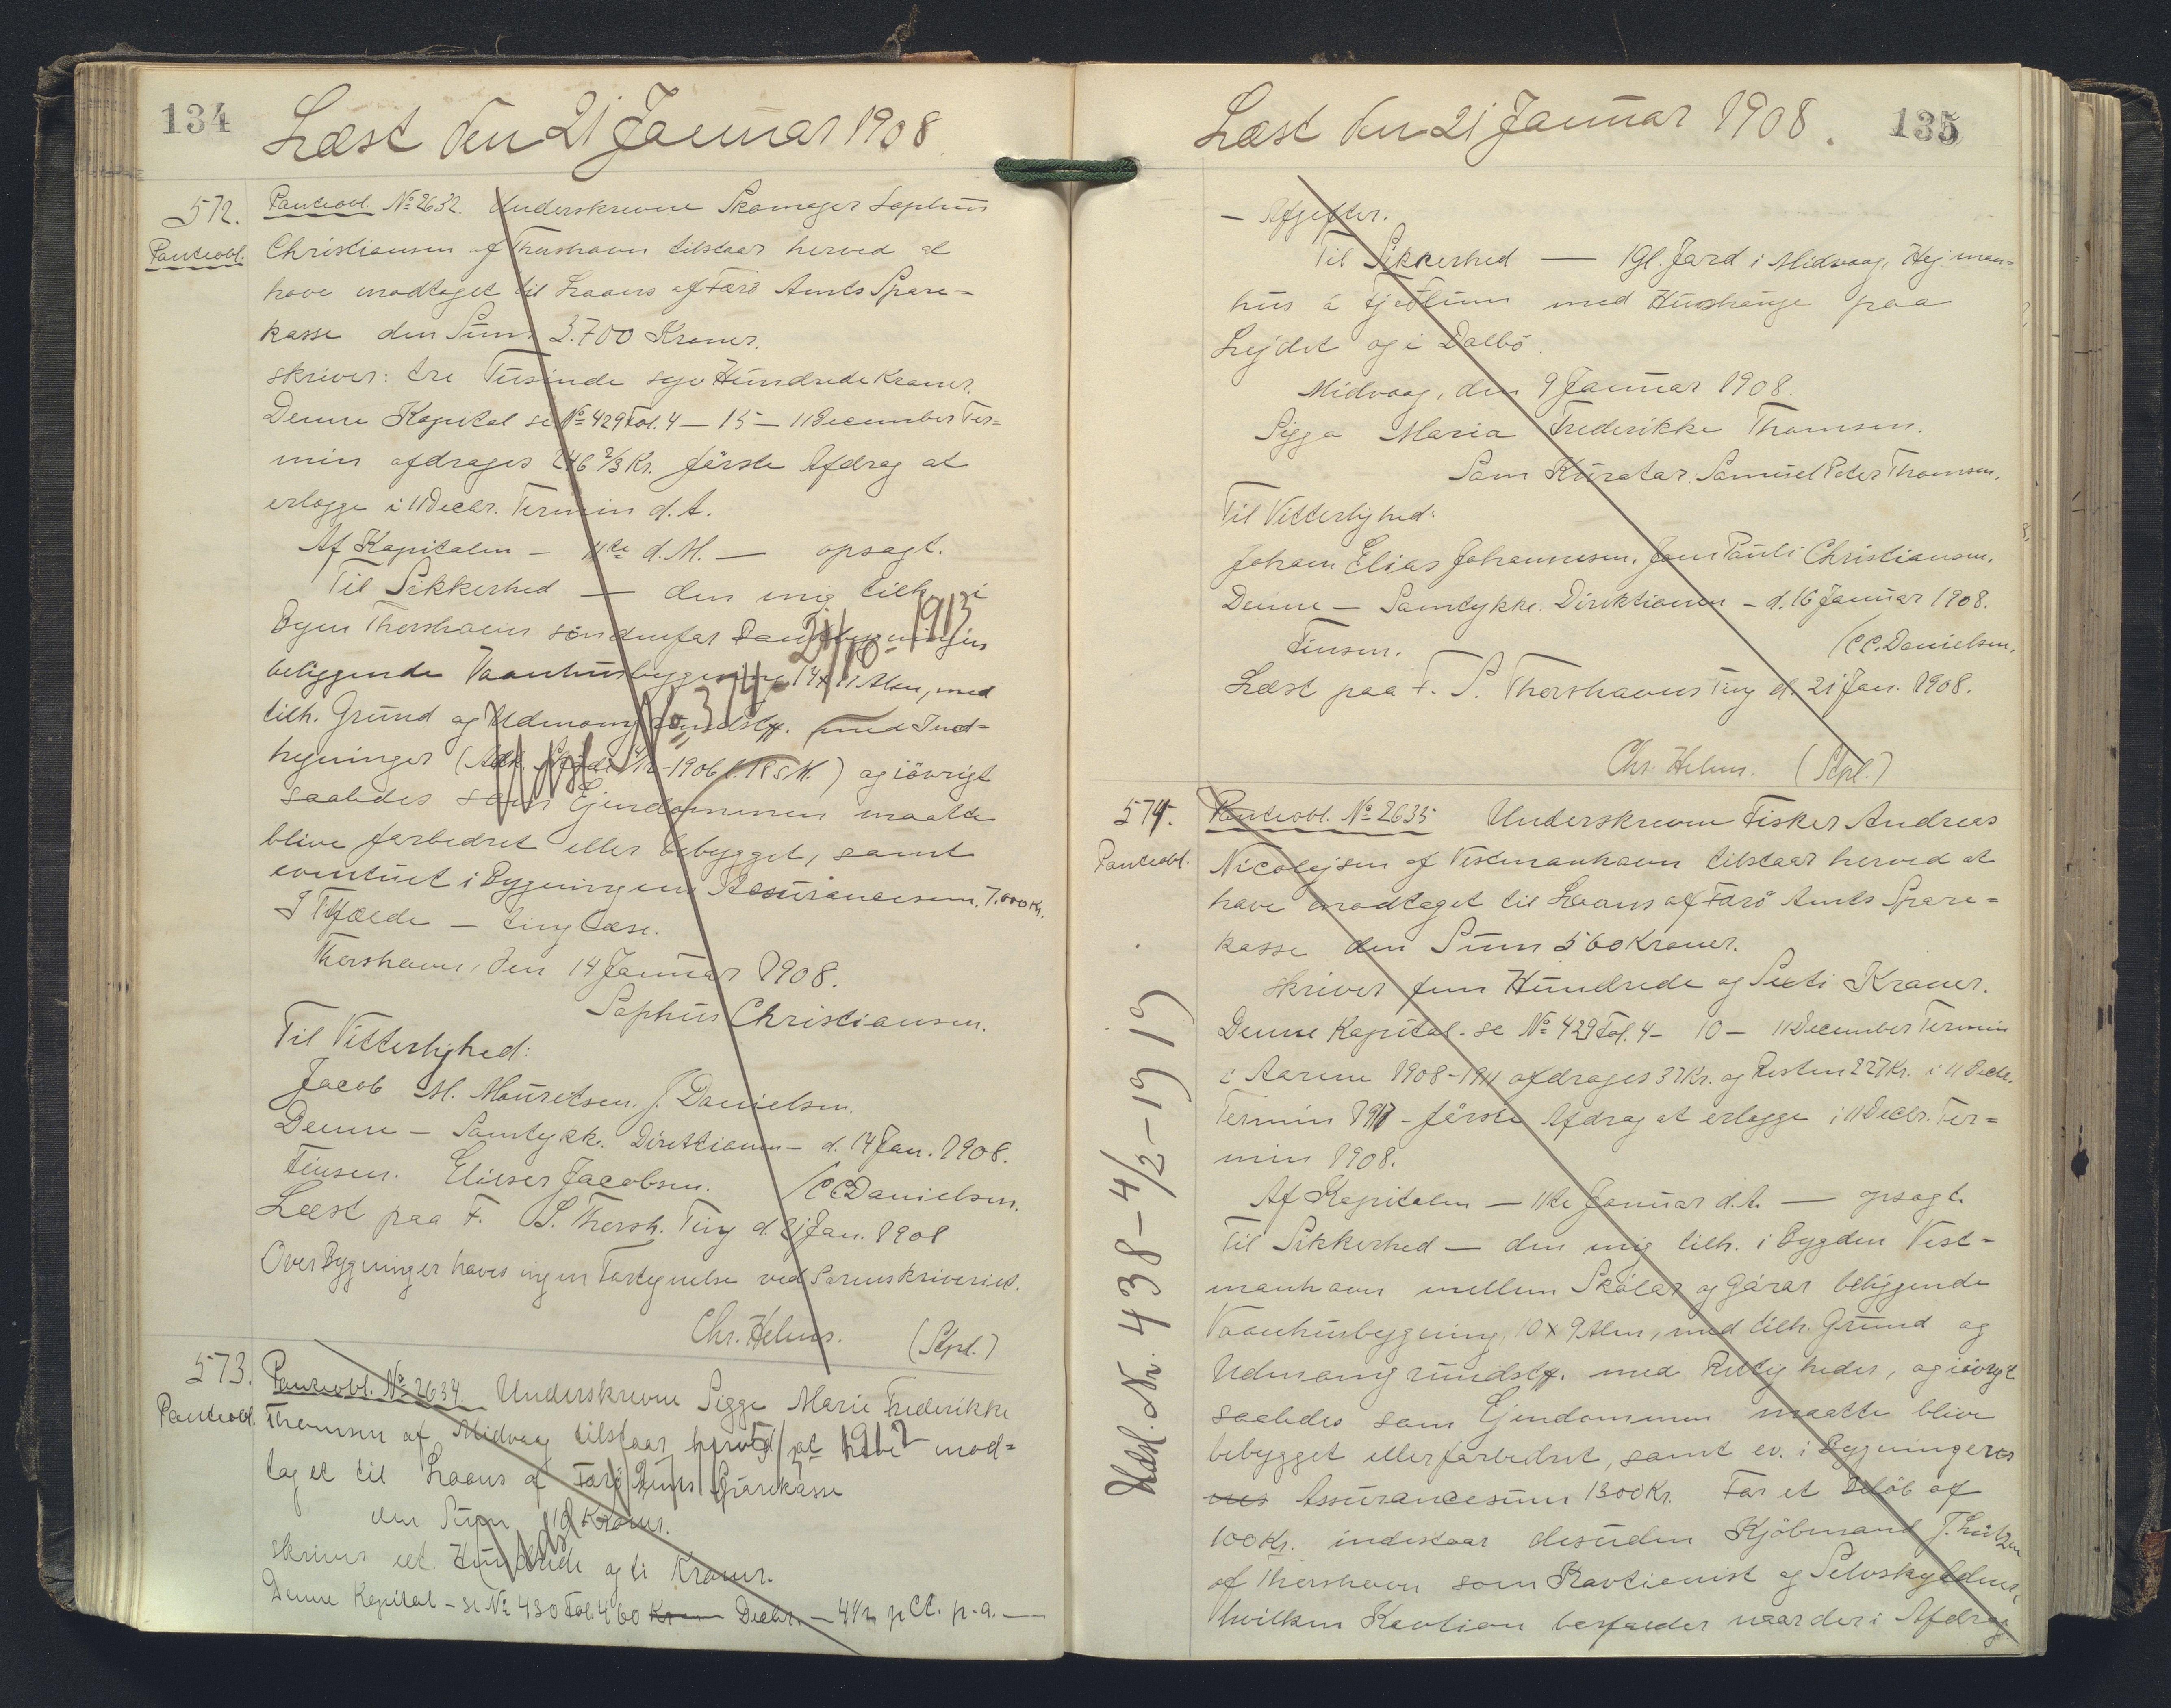 134
Læst den 21 Januar 1908
572.
Panteobl.
Panteobl. No 2632. Underskrevne Skomager Sophus
Christiansen af Thorshavn tilstaar herved at
have modtaget til Laans af Færø Amts Spare-
kasse den Sum 3.700 Kroner.
skriver: tre Tusinde syv Hundrede Kroner.
Denne Kapital se No 429 Fol. 4 — 15 — 11 December Ter-
min afdrages 246 2/3 Kr. første Afdrag at
erlægge i 11 Decbr. Termin d. A.
Af Kapitalen — 11te d. M. — opsagt.
Til Sikkerhed — den mig tilh. i
Byen Thorshavn søndenfor
beliggende Vaanhusbygning 14 x 11 Alen, med
tilh. Grund og Udmarksgrundstk. med Ind-
hegninger ( 1906 ) og iøvrigt
saaledes som Ejendommen maatte
blive forbedret eller bebygget, samt
eventuelt i Bygningens Assurancesum. 7.000 Kr.
I Tilfælde — tinglæse.
Thorshavn, den 14 Januar 1908.
Sophus Christiansen.
Til Vitterlighed:
Jacob M. Mouretsen. J. Danielsen.
Denne — Samtykke. Direktionen — d. 14 Jan. 1908.
Finsen. Elieser Jacobsen. /C C Danielsen.
Læst paa F. S. Thorsh. Ting d. 21 Jan. 1908
Over Bygninger haves ingen Fortegnelse ved Sorenskriveriet.
Chr. Helms. (Stpl.)
Udsl. No. 374 - 21/10 - 1913
573.
Panteobl.
Panteobl. No 2634. Underskrevne Sigge Marie Frederikke
Thomsen af Midvaag tilstaar herved at have mod-
taget til Laans af Færø Amts Sparekasse
den Sum 110 Kroner.
skriver et Hundrede og ti Kroner.
Denne Kapital — se No 430 Fol. 4 60 Kr Decbr. — 4 1/2 pCt. p. a. —
1912
135
Læst den 21 Januar 1908.
— Afgifter.
Til Sikkerhed — 1 Gl. Jord i Midvaag, Hejman-
hus á Fjøtlum med Huushauge paa
Lejdet og i Dalbø.
Midvaag, den 9 Januar 1908.
Sigga Maria Frederikke Thomsen.
Som Kurator: Samuel Peter Thomsen.
Til Vitterlighed:
Johan Elias Johannesen. Joen Pauli Christiansen.
Denne — Samtykke. Direktionen — d. 16 Januar 1908.
Finsen. /C C. Danielsen.
Læst paa F. S. Thorshavns Ting d. 21 Jan. 1908.
Chr. Helms. (Stpl.)
574.
Panteobl.
Panteobl. No 2635 Underskrevne Fisker Andreas
Nicolajsen af Vestmanhavn tilstaar herved at
have modtaget til Laans af Færø Amts Spare-
kasse den Sum 560 Kroner.
skriver fem Hundrede og Sexti Kroner.
Denne Kapital - se No 429 Fol. 4 - 10 — 11 December Termin
i Aarene 1908-1916 afdrages 37 Kr. og Resten 227 Kr. i 11 Decbr.
Termin 1917 - første Afdrag at erlægge i 11 Decbr. Ter-
min 1908.
Af Kapitalen — 11te Januar d. A. — opsagt.
Til Sikkerhed — den mig tilh. i Bygden Vest-
manhavn mellem Skálar og Gárar beliggende
Vaanhusbygning, 10 x 9 Alen, med tilh. Grund og
Udmarksgrundstk. med Rettigheder, og iøvrigt
saaledes som Ejendommen maatte blive
bebygget eller forbedret, samt ev. i Bygningernes
nes Assurancesum 1300 Kr. For et Beløb af
100 Kr. indestaar desuden Kjøbmand T. Lützen
af Thorshavn som Kautionist og Selvskyldner,
hvilken Kaution bortfalder naar der i Afdrag
Udsl. Nr. 438 - 4/2 - 19 19